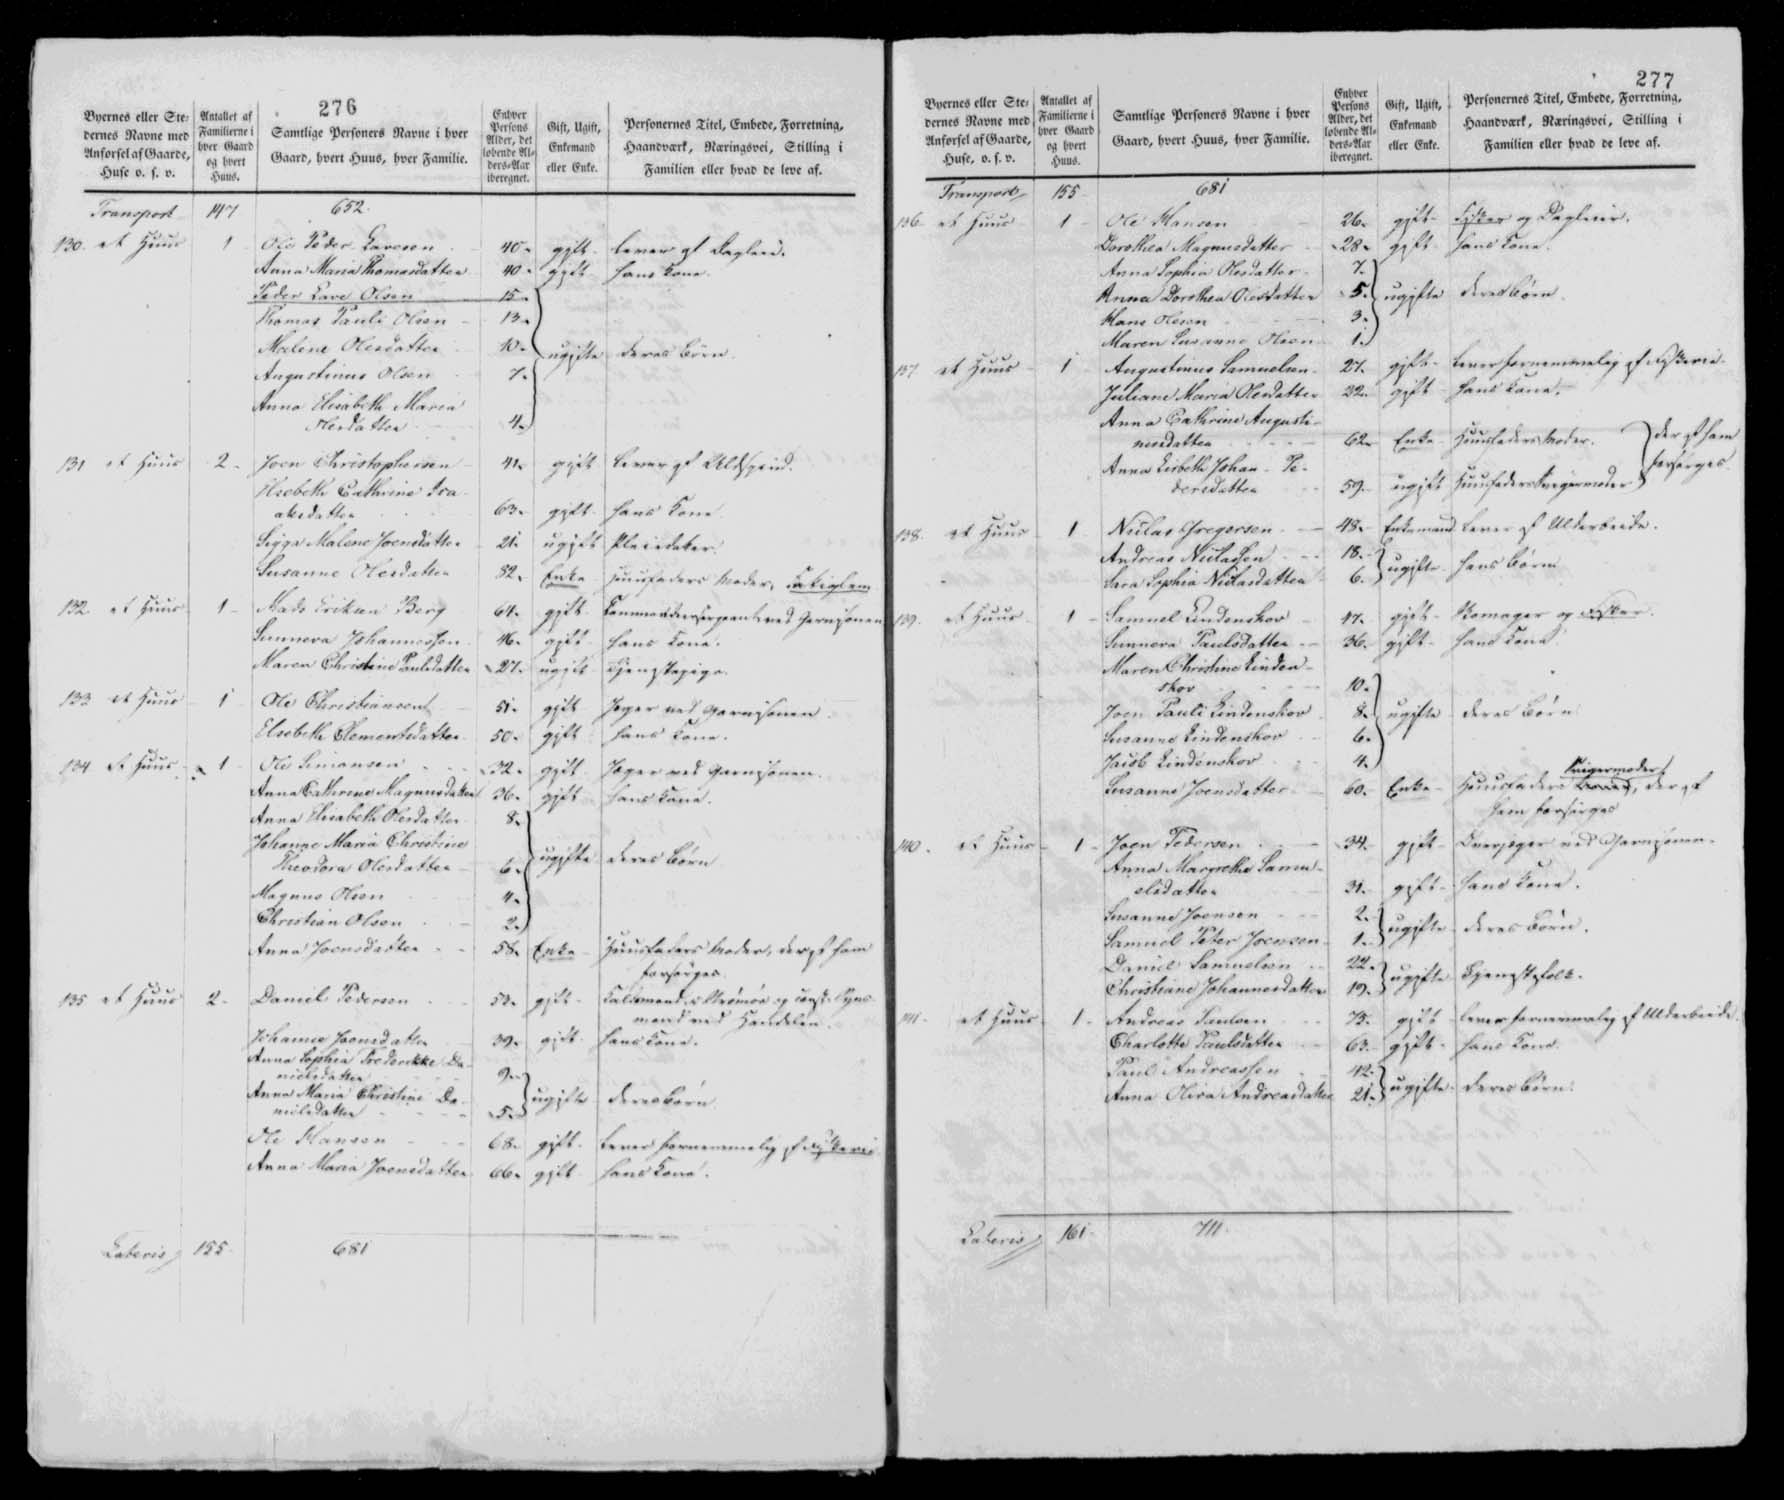 276
Byernes eller Ste-
dernes Navne med
Anførsel af Gaarde,
Huse o. s. v.
Antallet af
Familierne i
hver Gaard
og hvert
Huus.
Samtlige Personers Navne i hver
Gaard, hvert Huus, hver Familie.
Enhver
Persons
Alder, det
løbende Al-
ders-Aar
iberegnet.
Gift, Ugift,
Enkemand
eller Enke.
Personernes Titel, Embede, Forretning,
Haandværk, Næringsvei, Stilling i
Familien eller hvad de leve af.
Transport 147 652.
130. et Huus 1 Ole Peder Lavesen 40 gift lever af Dagleie.
Anna Maria Thomasdatter 40 gift hans Kone.
Peder Lave Olsen 15
Thomas Pauli Olsen 13
Malene Olesdatter 10 ugifte deres Børn.
Augustinus Olsen 7
Anna Elisabeth Maria
Olesdatter 4
131 et Huus 2 Joen Christophersen 41 gift lever af Uldspind.
Elsebeth Cathrine Isa-
aksdatter 63 gift hans Kone
Sigga Malene Joensdatter 21 ugift Pleiedatter.
Susanne Olesdatter 82 Enke Huusfaders Moder, Fattiglem
132 et Huus 1 Mads Eriksen Berg 64 gift Commandeersergeant ved Garnisonen
Sunneva Johannessen 46 gift hans Kone.
Maren Christine Paulsdatter 27 ugift Tjenestepige.
133 et Huus 1 Ole Christiansen 51 gift Jæger ved Garnisonen.
Elsebeth Clementsdatter 50 gift hans Kone.
134 et Huus 1 Ole Simonsen 32 gift Jæger ved Garnisonen.
Anna Cathrine Magnusdatter 36 gift hans Kone.
Anna Elisabeth Olesdatter 8
Johanne Maria Christine
Theodora Olesdatter 6 ugifte deres Børn
Magnus Olsen 4
Christian Olsen 2
Anna Joensdatter 58 Enke Huusfaders Moder, der af ham
forsørges.
135 et Huus 2 Daniel Pedersen 53 gift
mand ved Handelen.
Johanne Joensdatter 39 gift hans Kone.
Anna Sophia Frederikke Da-
nielsdatter 9
Anna Maria Christine Da-
nielsdatter 5 ugifte deres Børn
Ole Hansen 68 gift lever fornemmelig af Fiskerie
Anna Maria Joensdatter 66 gift hans Kone.
Lateris 155 681
277
Byernes eller Ste-
dernes Navne med
Anførsel af Gaarde,
Huse, o. s. v.
Antallet af
Familierne i
hver Gaard
og hvert
Huus.
Samtlige Personers Navne i hver
Gaard, hvert Huus, hver Familie.
Enhver
Persons
Alder, det
løbende Al-
ders-Aar
iberegnet.
Gift, Ugift,
Enkemand
eller Enke.
Personernes Titel, Embede, Forretning,
Haandværk, Næringsvei, Stilling i
Familien eller hvad de leve af.
Transport 155 681
136 et Huus 1 Ole Hansen 26 gift Fisker og Dagleier.
Dorothea Magnusdatter 28 gift hans Kone.
Anna Sophia Olesdatter 7
Anna Dorothea Olesdatter 5 ugifte deres Børn.
Hans Olesen 3
Maren Susanne Olsen 1
137 et Huus 1 Augustinus Samuelsen 27 gift lever fornemmelig af Fiskerie.
Juliane Maria Olesdatter 32 gift hans Kone.
Anna Cathrine Augusti-
nusdatter 62 Enke Huusfaders Moder. der af ham
Anna Lisbeth Johan Pe-
dersdatter 59 ugift Huusfaders Svigermoder forsørges.
138. et Huus 1 Niclas Gregersen 48 Enkemand lever af Uldarbeide.
Andreas Niclassen 18 ugifte hans Børn
Sara Sophia Niclasdatter 6
139. et Huus 1 Samuel Lindenskov 47 gift Skomager og Fisker.
Sunneva Paulsdatter 36 gift hans Kone
Maren Christine Linden-
skov 10
Joen Pauli Lindenskov 8 ugifte deres Børn
Susanne Lindenskov 6
Jacob Lindenskov 4
Susanne Joensdatter 60 Enke Huusfaders Svigermoder, der af
ham forsørges
140. et Huus 1 Joen Pedersen 34 gift Overjæger ved Garnisonen.
Anna Margrethe Samu-
elsdatter 31 gift hans Kone.
Susanne Joensen 2 ugifte deres Børn.
Samuel Peter Joensen 1
Daniel Samuelsen 22 ugifte Tjenestefolk.
Christiane Johannesdatter 19
141. et Huus 1 Andreas Paulsen 75 gift lever fornemmelig af Uldarbeide.
Charlotte Paulsdatter 63 gift hans Kone.
Paul Andreassen 42 ugifte deres Børn.
Anna Olivia Andreasdatter 21
Lateris 161 711.